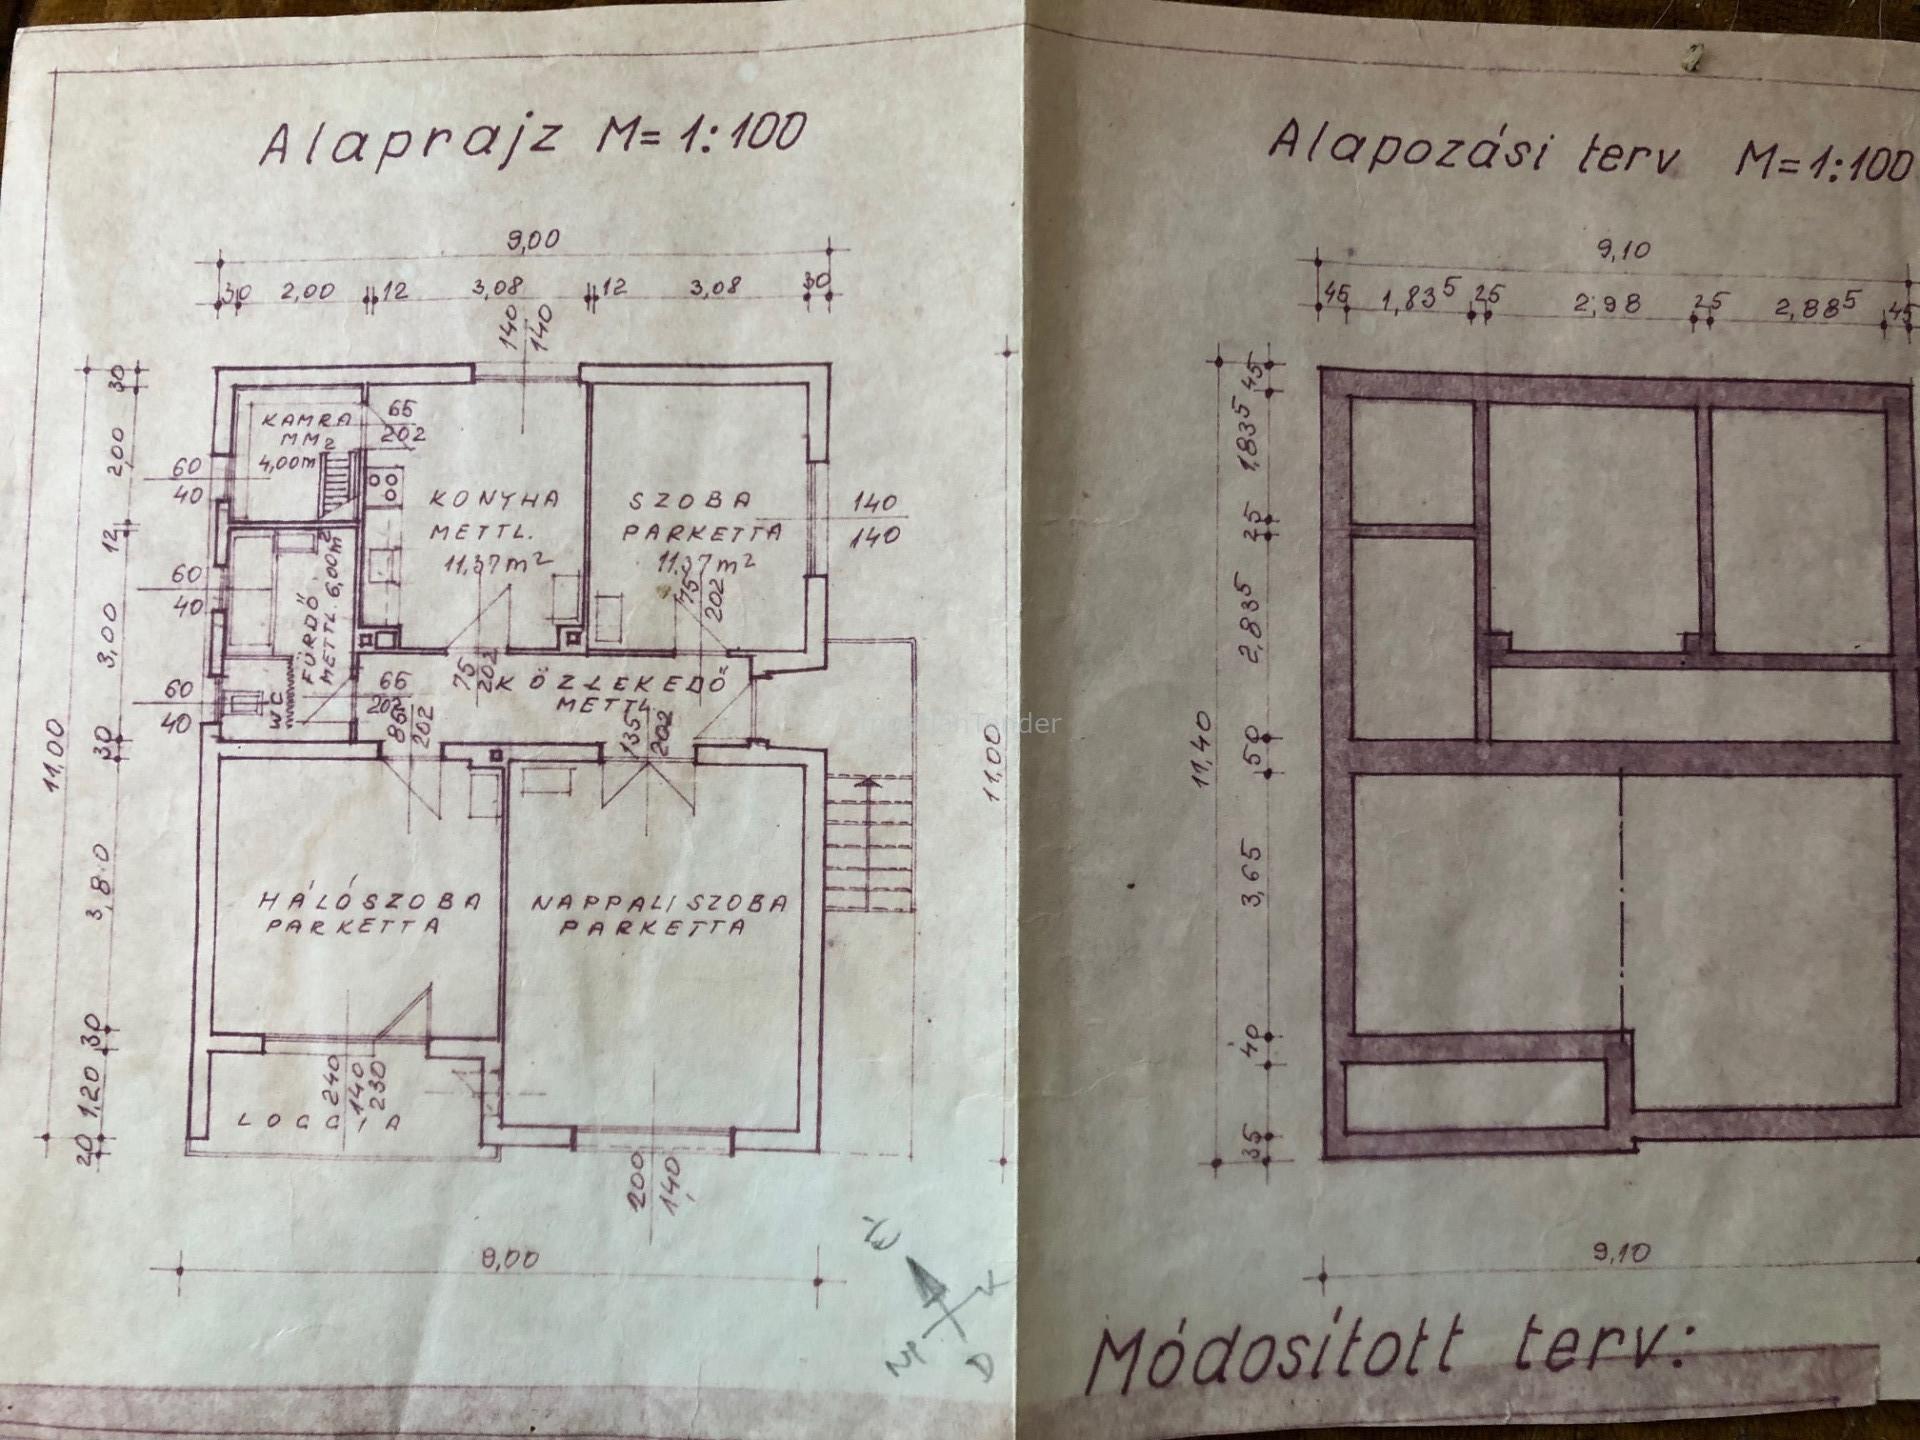 Alaprajz M=1:100
9,00
30 2,00 12 3,08 12 3,08 30
140
140
30
2,00
12
3,00
30
3,80
30
1,20
20
11,00
KAMRA
MM2
4,00m
65
202
60
40
60
40
60
40
KONYHA
METTL.
11,37m²
SZOBA
PARKETTA
11,37m²
140
140
FÜRDŐ
METTL. 6,00m²
WC
75
202
75
202
65
202
KÖZLEKEDŐ
METTL.
86
202
135
202
HÁLÓSZOBA
PARKETTA
NAPPALI SZOBA
PARKETTA
240
140
230
LOGGIA
200
140
11,00
9,00
É
K
D
NY
Alapozási terv M=1:100
9,10
45 1,83⁵ 25 2,98 25 2,88⁵ 45
45
1,83⁵
25
2,83⁵
50
3,65
40
35
11,40
9,10
Módosított terv: